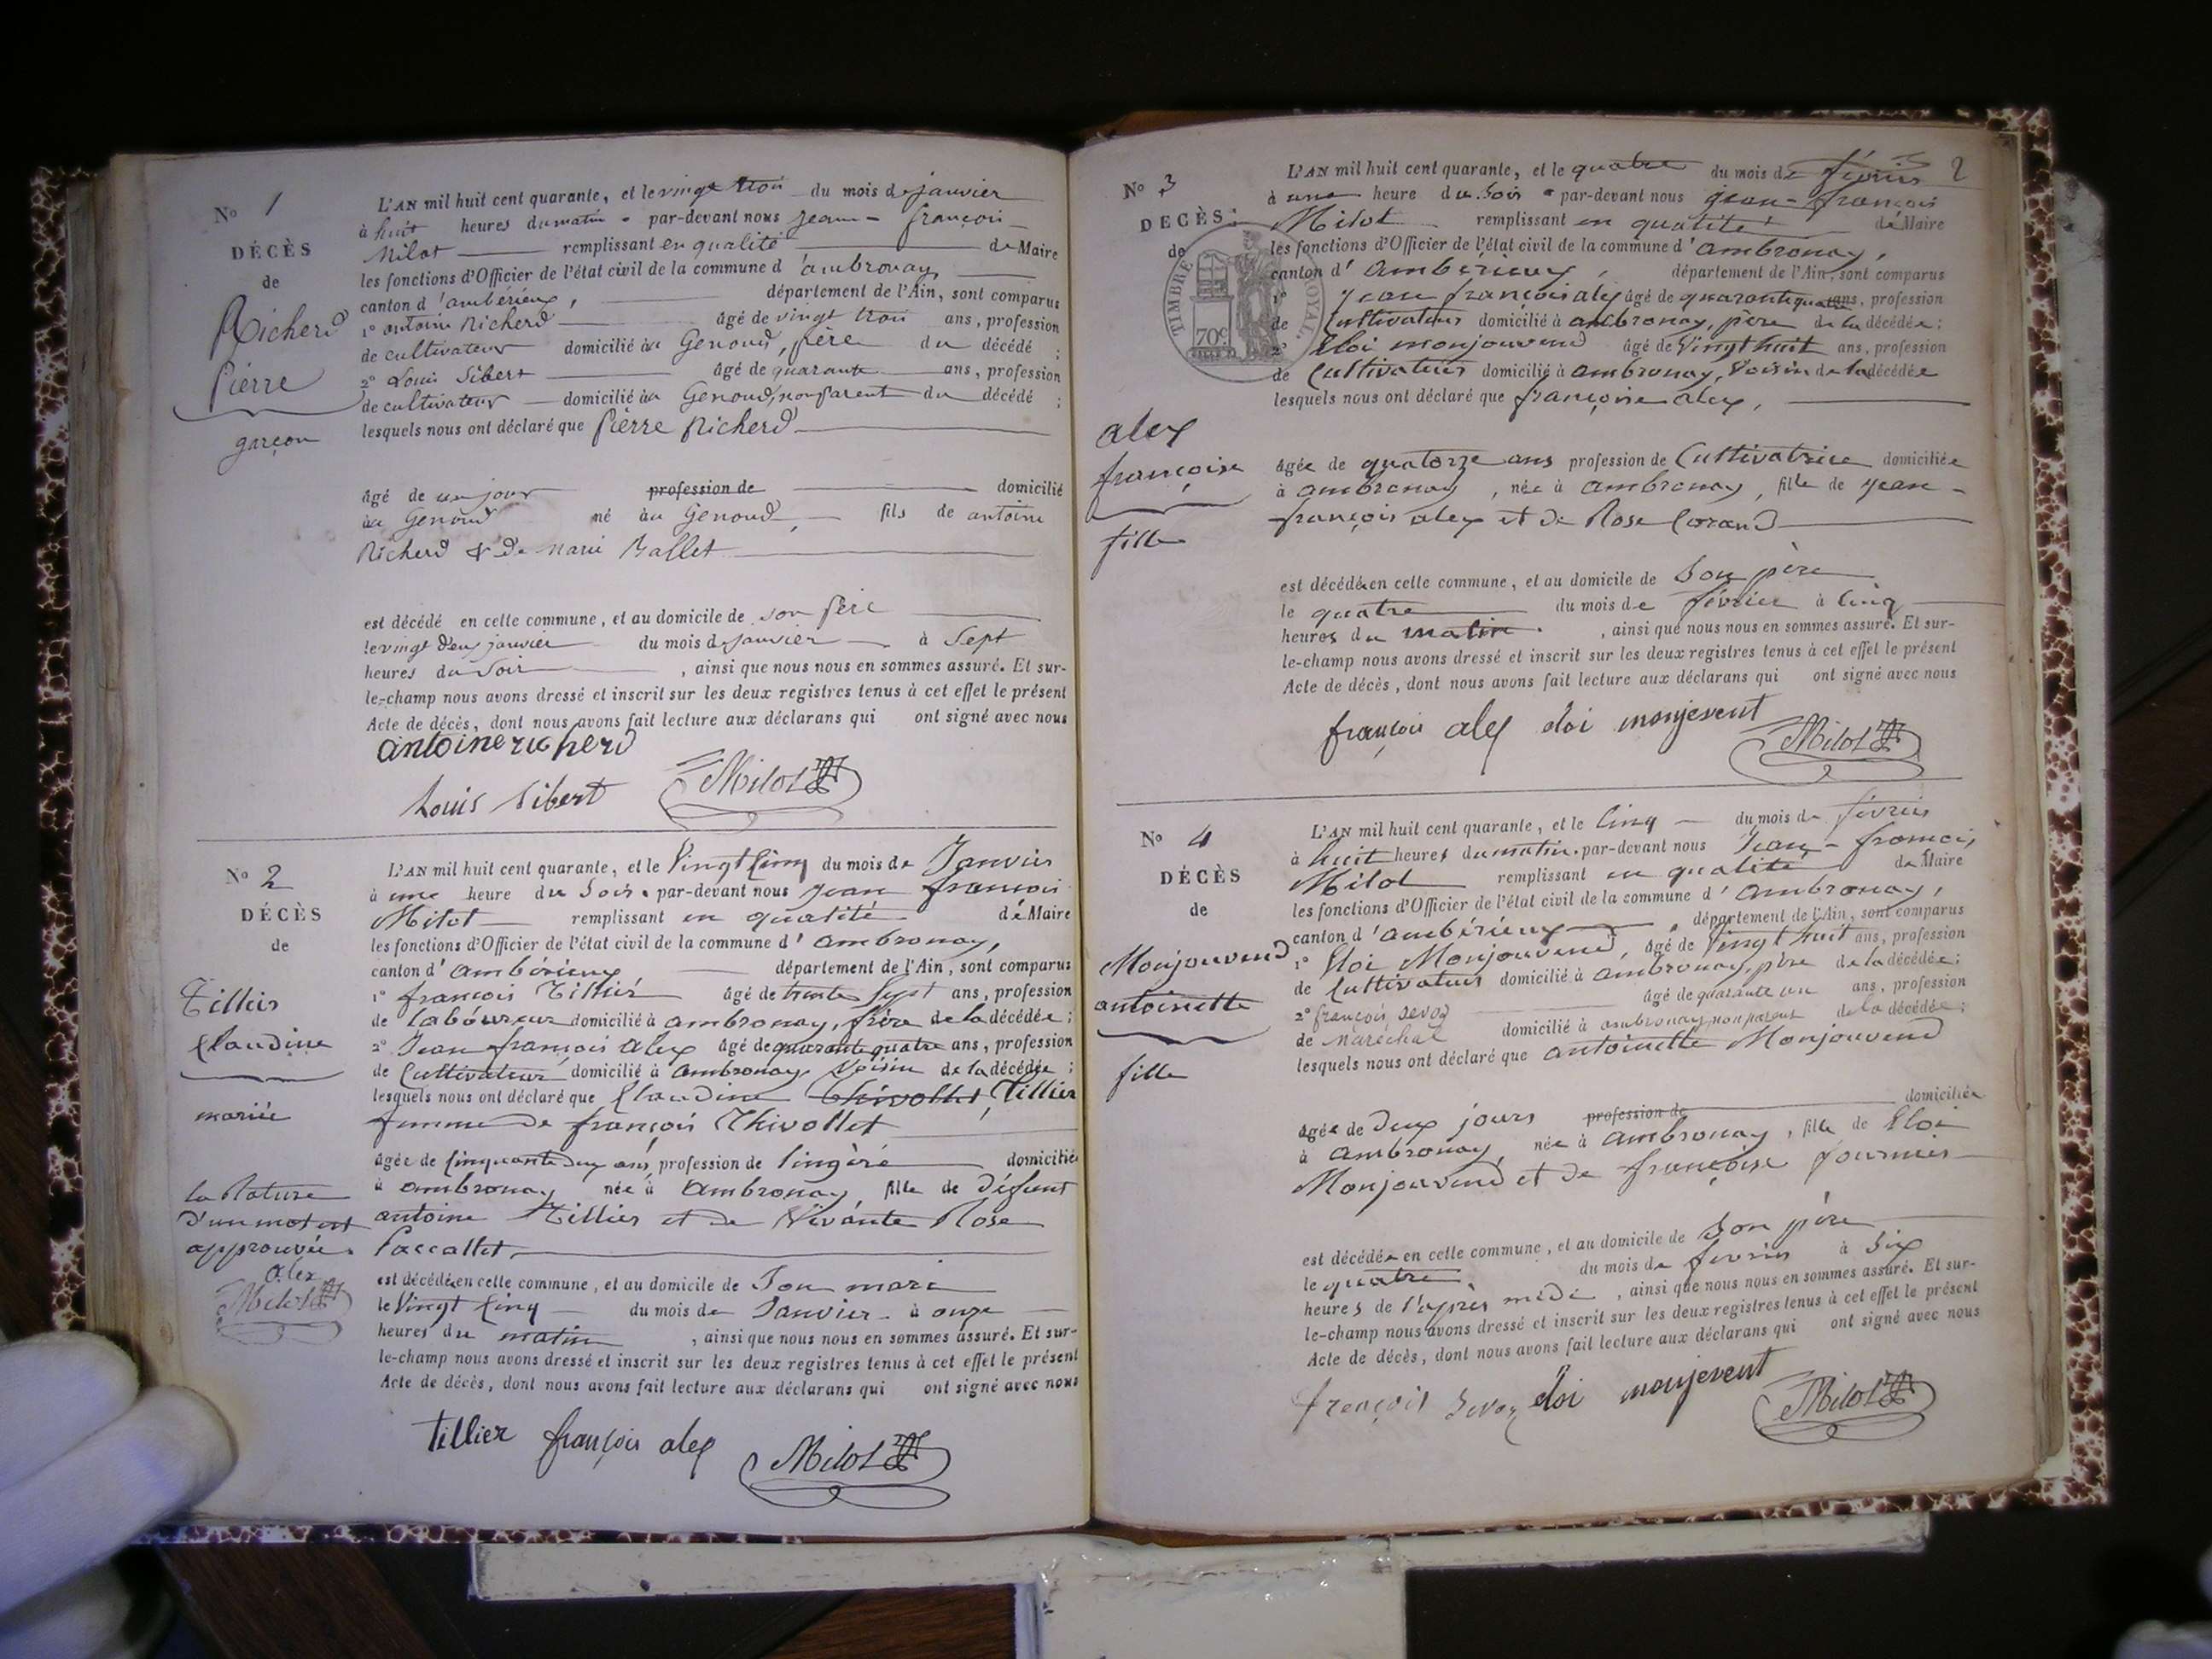 N° 1
DÉCÈS
de
Richerd
Pierre
garçon
L'AN mil huit cent quarante, et le vingt trois du mois de janvier
à huit heures du matin par-devant nous jean-françois
Milot remplissant en qualité de Maire
les fonctions d'Officier de l'état civil de la commune d'ambronay
canton d'ambérieux, département de l'Ain, sont comparus
1° antoine Richerd âgé de vingt trois ans, profession
de cultivateur domicilié au Genoud, père du décédé ;
2° Louis Sibert âgé de quarante ans, profession
de cultivateur domicilié au Genoud, non parent du décédé ;
lesquels nous ont déclaré que Pierre Richerd
âgé de un jour profession de domicilié
au Genoud né au Genoud, fils de antoine
Richerd & de marie Ballet
est décédé en cette commune, et au domicile de son père
le vingt deux janvier du mois de janvier à Sept
heures du soir, ainsi que nous nous en sommes assuré. Et sur-
le-champ nous avons dressé et inscrit sur les deux registres tenus à cet effet le présent
Acte de décès, dont nous avons fait lecture aux déclarans qui ont signé avec nous
antoine richerd
Louis Sibert Milot
N° 2
DÉCÈS
de
Tillier
Claudine
mariée
la Rature
d'un mot est
approuvée.
alex
Milot
L'AN mil huit cent quarante, et le Vingt Cinq du mois de Janvier
à une heure du Soir par-devant nous jean françois
Milot remplissant en qualité de Maire
les fonctions d'Officier de l'état civil de la commune d'ambronay,
canton d'ambérieux département de l'Ain, sont comparus
1° françois Tillier âgé de trente Sept ans, profession
de laboureur domicilié à ambronay, frère de la décédée ;
2° Jean-françois alex âgé de quarante quatre ans, profession
de Cultivateur domicilié à ambronay Voisin de la décédée ;
lesquels nous ont déclaré que Claudine Thivollet Tillier
femme de françois Thivollet
âgée de Cinquante deux ans, profession de lingère domiciliée
à ambronay née à ambronay, fille de défunt
antoine Tillier et de Vivante Rose
Paccallet,
est décédée en cette commune, et au domicile de Son mari
le Vingt Cinq du mois de Janvier à onze
heures du matin, ainsi que nous nous en sommes assuré. Et sur-
le-champ nous avons dressé et inscrit sur les deux registres tenus à cet effet le présent
Acte de décès, dont nous avons fait lecture aux déclarans qui ont signé avec nous
Tillier françois alex Milot
2
N° 3
DÉCÈS
de
TIMBRE ROYAL.
70c
alex
françoise
fille
L'AN mil huit cent quarante, et le quatre du mois de février
à une heure du Soir par-devant nous jean-françois
Milot remplissant en qualité de Maire
les fonctions d'Officier de l'état civil de la commune d'ambronay,
canton d'ambérieux, département de l'Ain, sont comparus
1° jean françois alex âgé de quarante quatre ans, profession
de Cultivateur domicilié à ambronay, père de la décédée ;
2° Eloi monjouvend âgé de Vingt huit ans, profession
de Cultivateur domicilié à ambronay, Voisin de la décédée
lesquels nous ont déclaré que françoise alex,
âgée de quatorze ans profession de Cultivatrice domiciliée
à ambronay, née à ambronay, fille de jean-
françois alex et de Rose Corand
est décédée en cette commune, et au domicile de Son père
le quatre du mois de février à Cinq
heures du matin, ainsi que nous nous en sommes assuré. Et sur-
le-champ nous avons dressé et inscrit sur les deux registres tenus à cet effet le présent
Acte de décès, dont nous avons fait lecture aux déclarans qui ont signé avec nous
françois alex eloi monjevent Milot
N° 4
DÉCÈS
de
Monjouvend
antoinette
fille
L'AN mil huit cent quarante, et le Cinq du mois de février
à huit heures du matin par-devant nous Jean-françois
Milot remplissant en qualité de Maire
les fonctions d'Officier de l'état civil de la commune d'ambronay,
canton d'ambérieux, département de l'Ain, sont comparus
1° Eloi Monjouvend, âgé de Vingt huit ans, profession
de Cultivateur domicilié à ambronay, père de la décédée ;
2° françois Sevoz âgé de quarante un ans, profession
de Maréchal domicilié à ambronay non parent de la décédée ;
lesquels nous ont déclaré que antoinette Monjouvend
âgée de Deux jours profession de domiciliée
à ambronay, née à ambronay, fille de Eloi
Monjouvend et de françoise fournier
est décédée en cette commune, et au domicile de Son père
le quatre du mois de février à Six
heures de l'après midi, ainsi que nous nous en sommes assuré. Et sur-
le-champ nous avons dressé et inscrit sur les deux registres tenus à cet effet le présent
Acte de décès, dont nous avons fait lecture aux déclarans qui ont signé avec nous
françois Sevoz eloi monjevent Milot